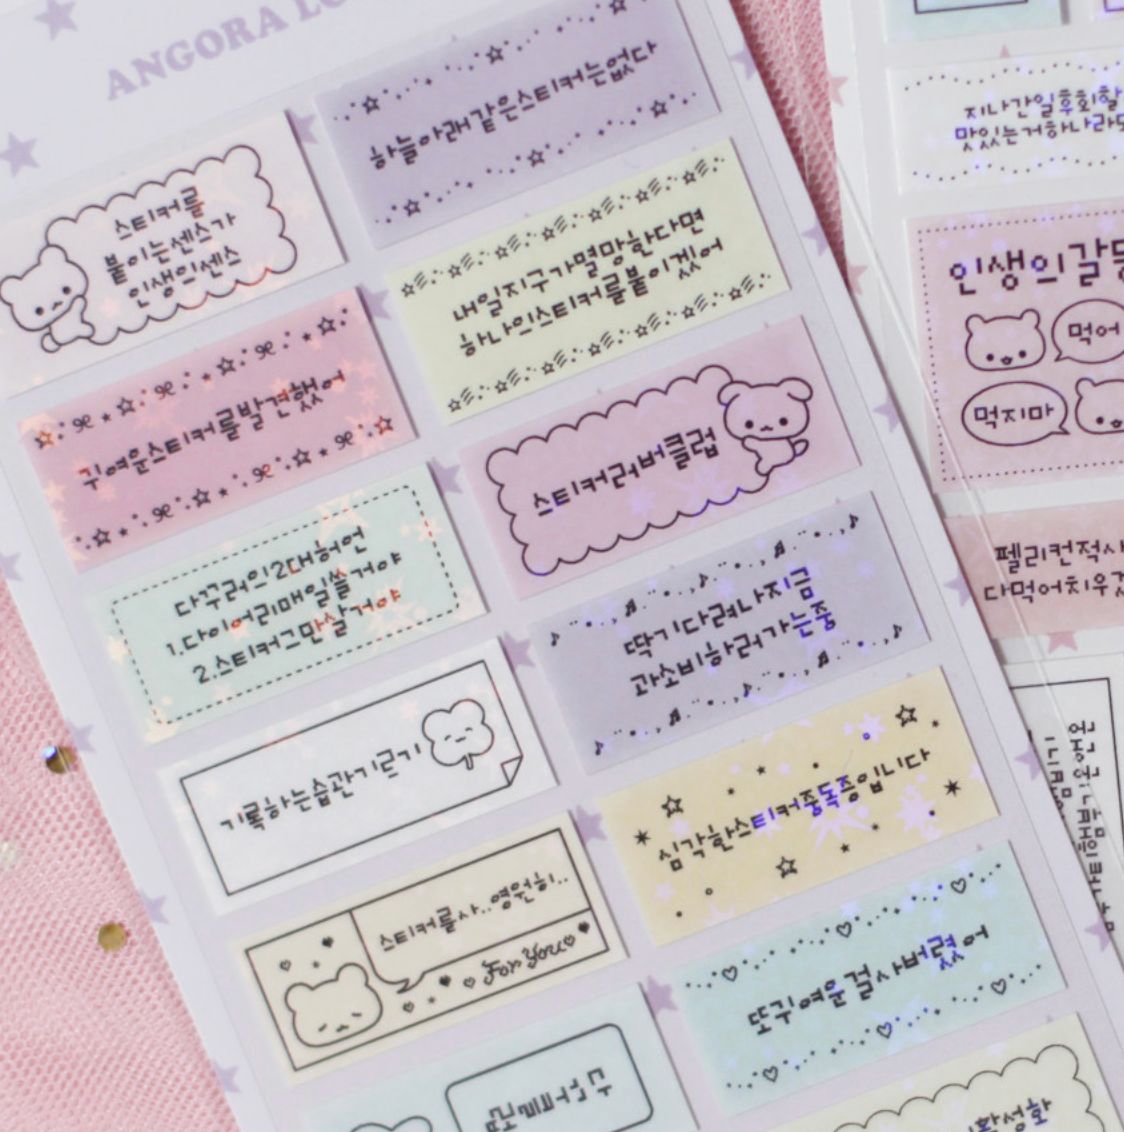 ANGORA
하늘아래같은스티커는없다
스티커를
붙이는센스가
인생의센스
내일지구가멸망한다면
하나의스티커를붙이겠어
귀여운스티커를발견했어
스티커러버클럽
다꾸러의2대허언
1.다이어리매일쓸거야
2.스티커그만살거야
딱기다려나지금
과소비하러가는중
기록하는습관기르기
심각한스티커중독증입니다
스티커를사..영원히..
For You
또귀여운걸사버렸어
지나간일후회할
맛있는거하나라도
인생의갈
먹어
먹지마
펠리컨적사
다먹어치우겠